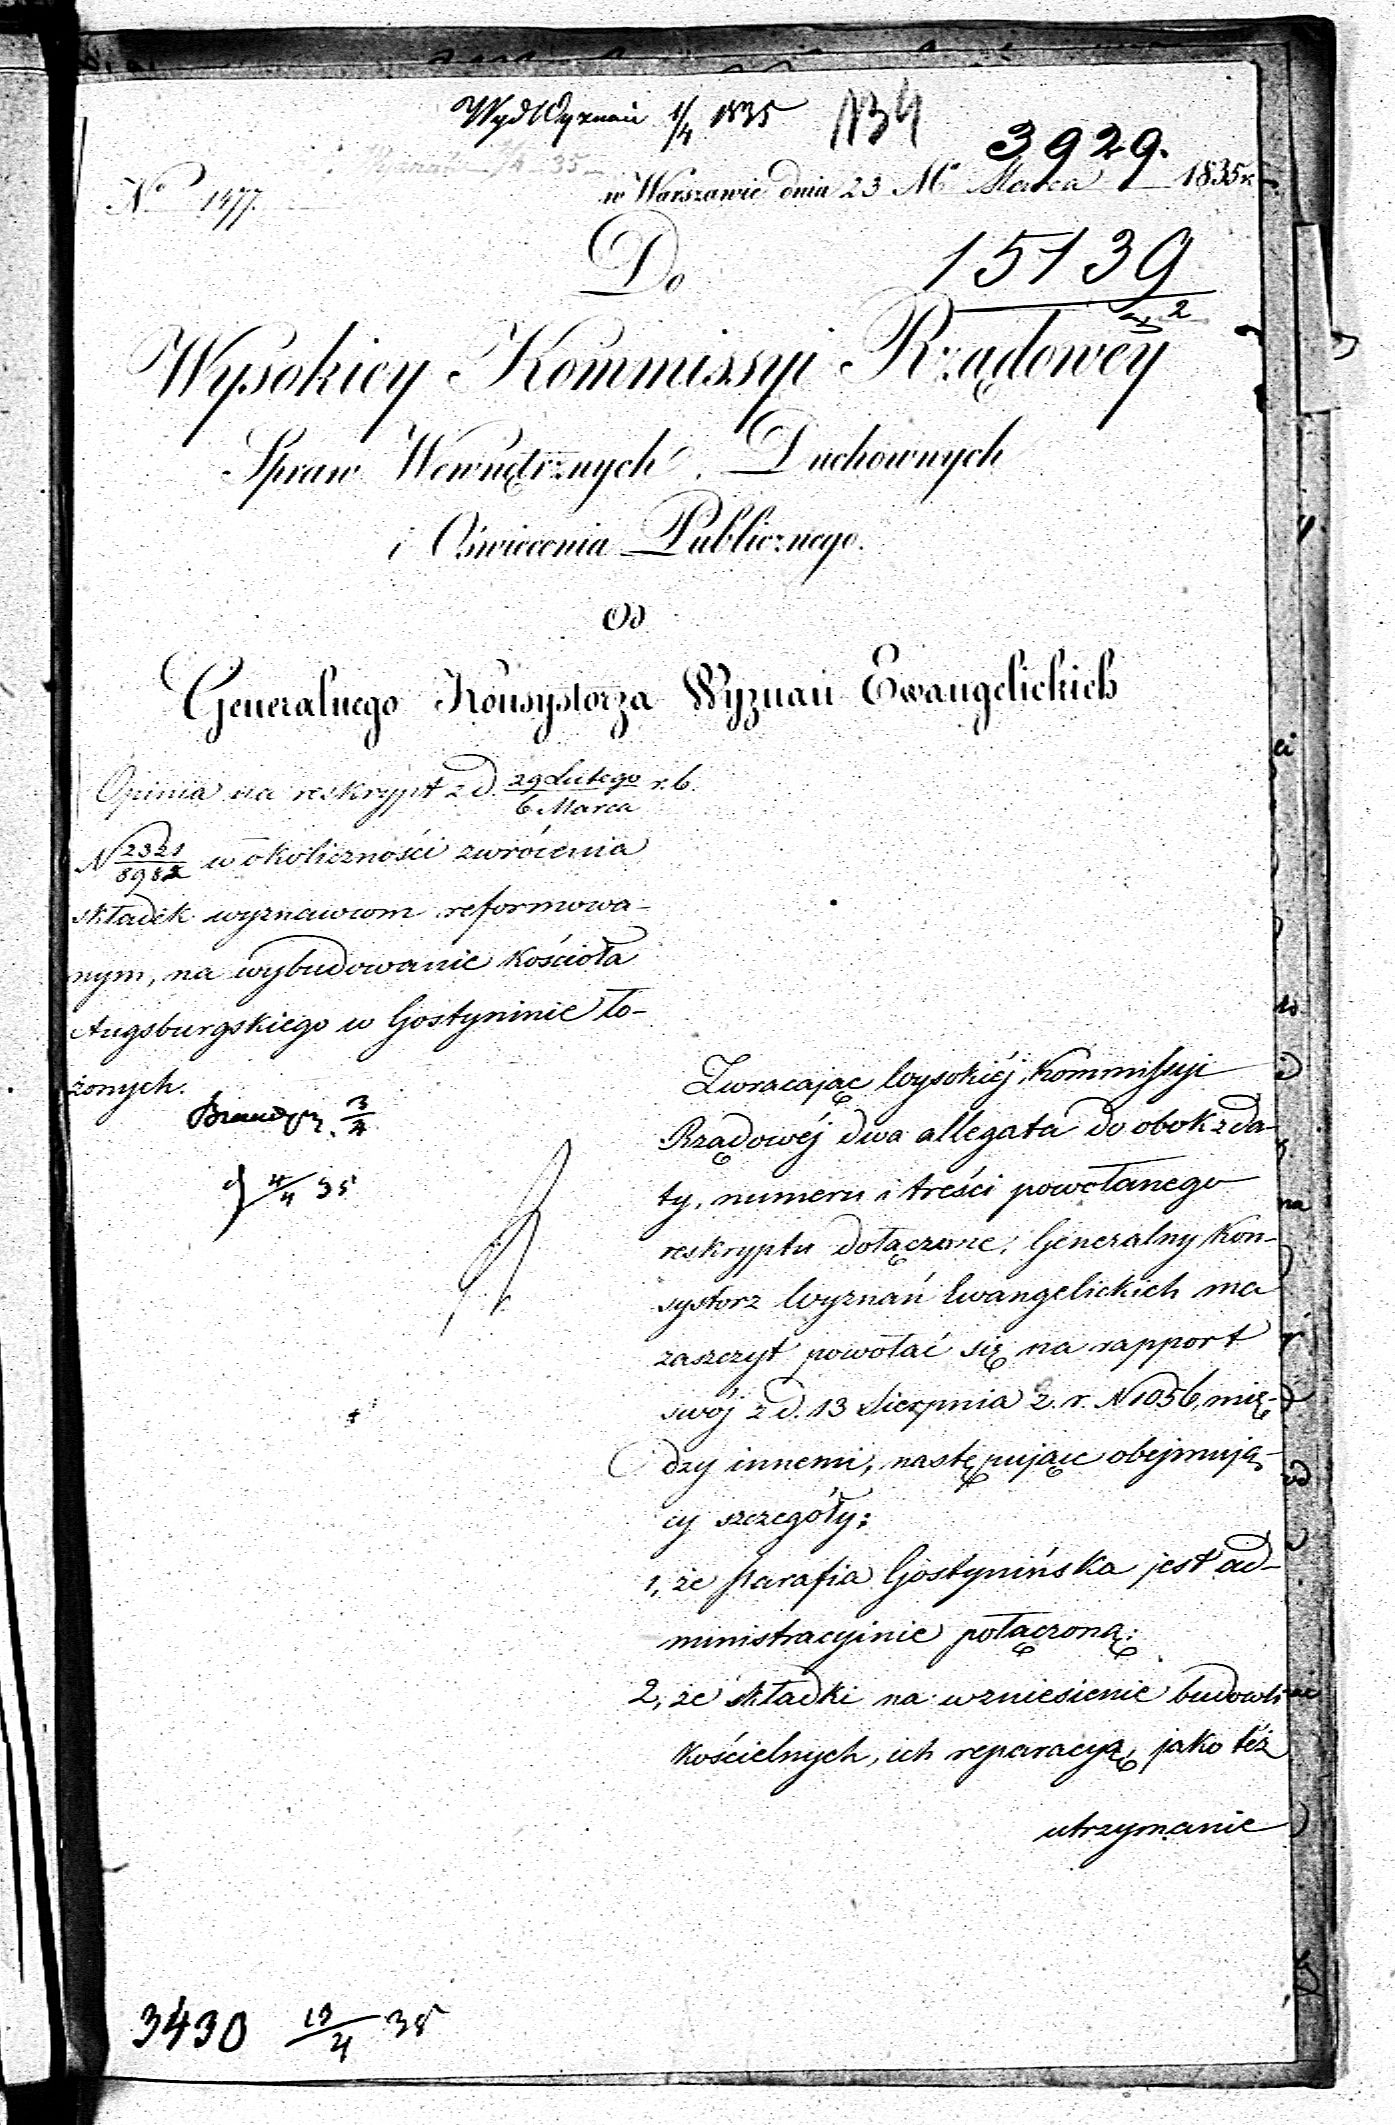 WydWyznań 1/4 1835 134
3929.
No 1477. w Warszawie dnia 23 Mca Marca 1835 r.
Do
15139
2
Wysokiey Kommissyi Rządowéy
Spraw Wewnętrznych, Duchownych
i Oświecenia Publicznego.
Od
Generalnego Konsystorza Wyznań Ewangelickich
Opinia na reskrypt z d. 29 Lutego/6 Marca r. b.
N 2321/8982 w okoliczności zwrócenia
składek wyznawcom reformowa-
nym, na wybudowanie kościoła
Augsburgskiego w Gostyninie ło-
żonych.
3/4
4/4 35
Zwracając Wysokiéj Kommissyi
Rządowéj dwa allegata do obok z da-
ty, numeru i treści powołanego
reskryptu dołączone, Generalny Kon-
systorz Wyznań Ewangelickich ma
zaszczyt powołać się na rapport
swój z d. 13 Sierpnia z. r. N 1056, mię-
dzy innemi, następujące obejmują-
cy szczegóły:
1, że Parafia Gostynińska jest ad-
ministracyinie połączoną;
2, że składki na wzniesienie budowli
kościelnych, ich reparacyą, jako też
utrzymanie
3430 13/4 35